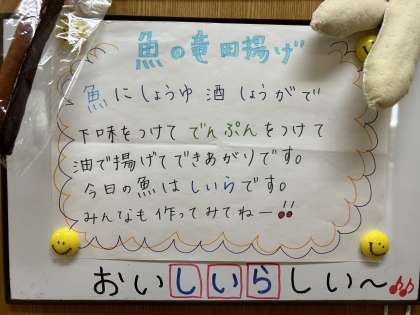 魚の竜田揚げ
魚にしょうゆ 酒 しょうがで
下味をつけて でんぷんをつけて
油で揚げてできあがりです。
今日の魚は しいらです。
みんなも作ってみてねー!!
おいしいらしい〜♪♪